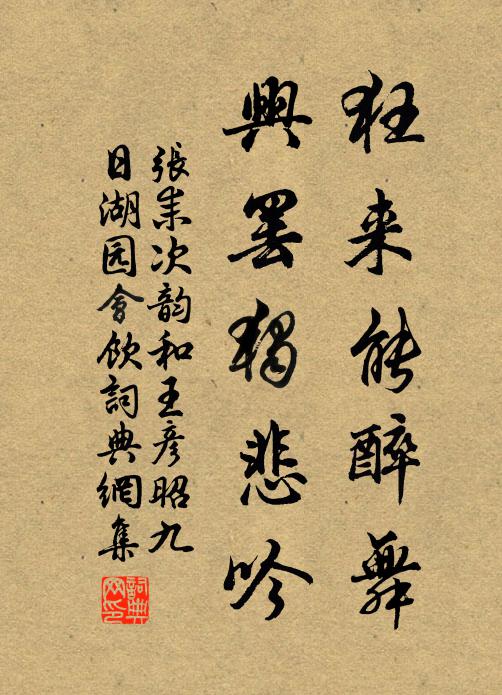 狂来能醉舞
興罷獨悲吟
張耒次韵和王彦昭九
日湖园會飲詞典網集
詞典
网印